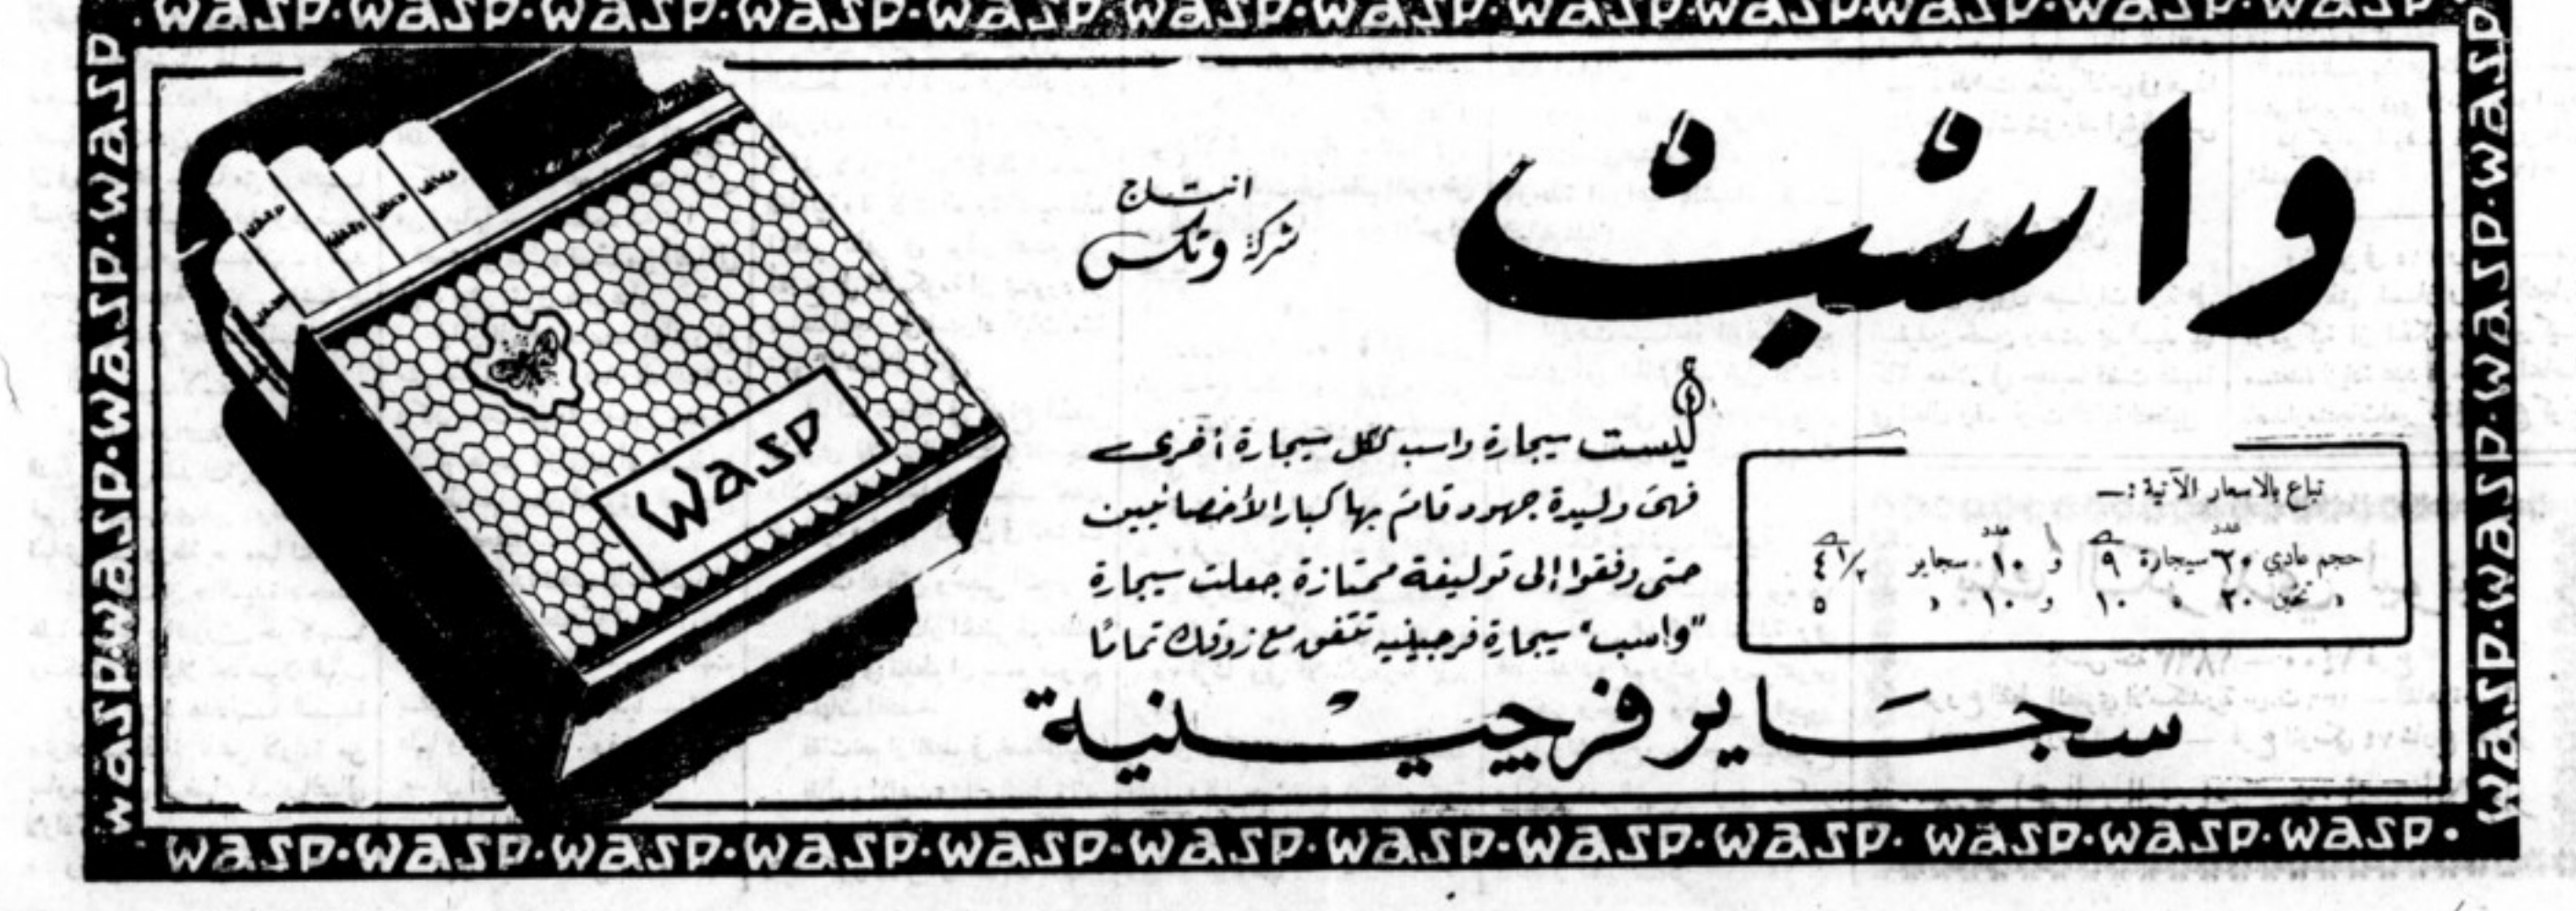 wasp.wasp.wasp.wasp.wasp.wasp.wasp.wasp.wasp.wasp.wasp.wasp
واسب
انتاج
شركة وتكس
ليست سيجارة واسب ككل سيجارة أخرى
فهى وليدة جهود قام بها كبار الأخصائيين
حتى وفقوا إلى توليفة ممتازة جعلت سيجارة
"واسب" سيجارة فرجينيه تتفق مع ذوقك تمامًا
تباع بالاسعار الآتية :—
حجم عادي ٢٠ سيجارة ٩ و ١٠ سجاير ٤ ١/٢
» ٢٠ » ١٠ و ١٠ » ٥
سجاير فرجينية
wasp
wasp.wasp.wasp.wasp
wasp.wasp.wasp.wasp
wasp.wasp.wasp.wasp.wasp.wasp.wasp.wasp.wasp.wasp.wasp.wasp.